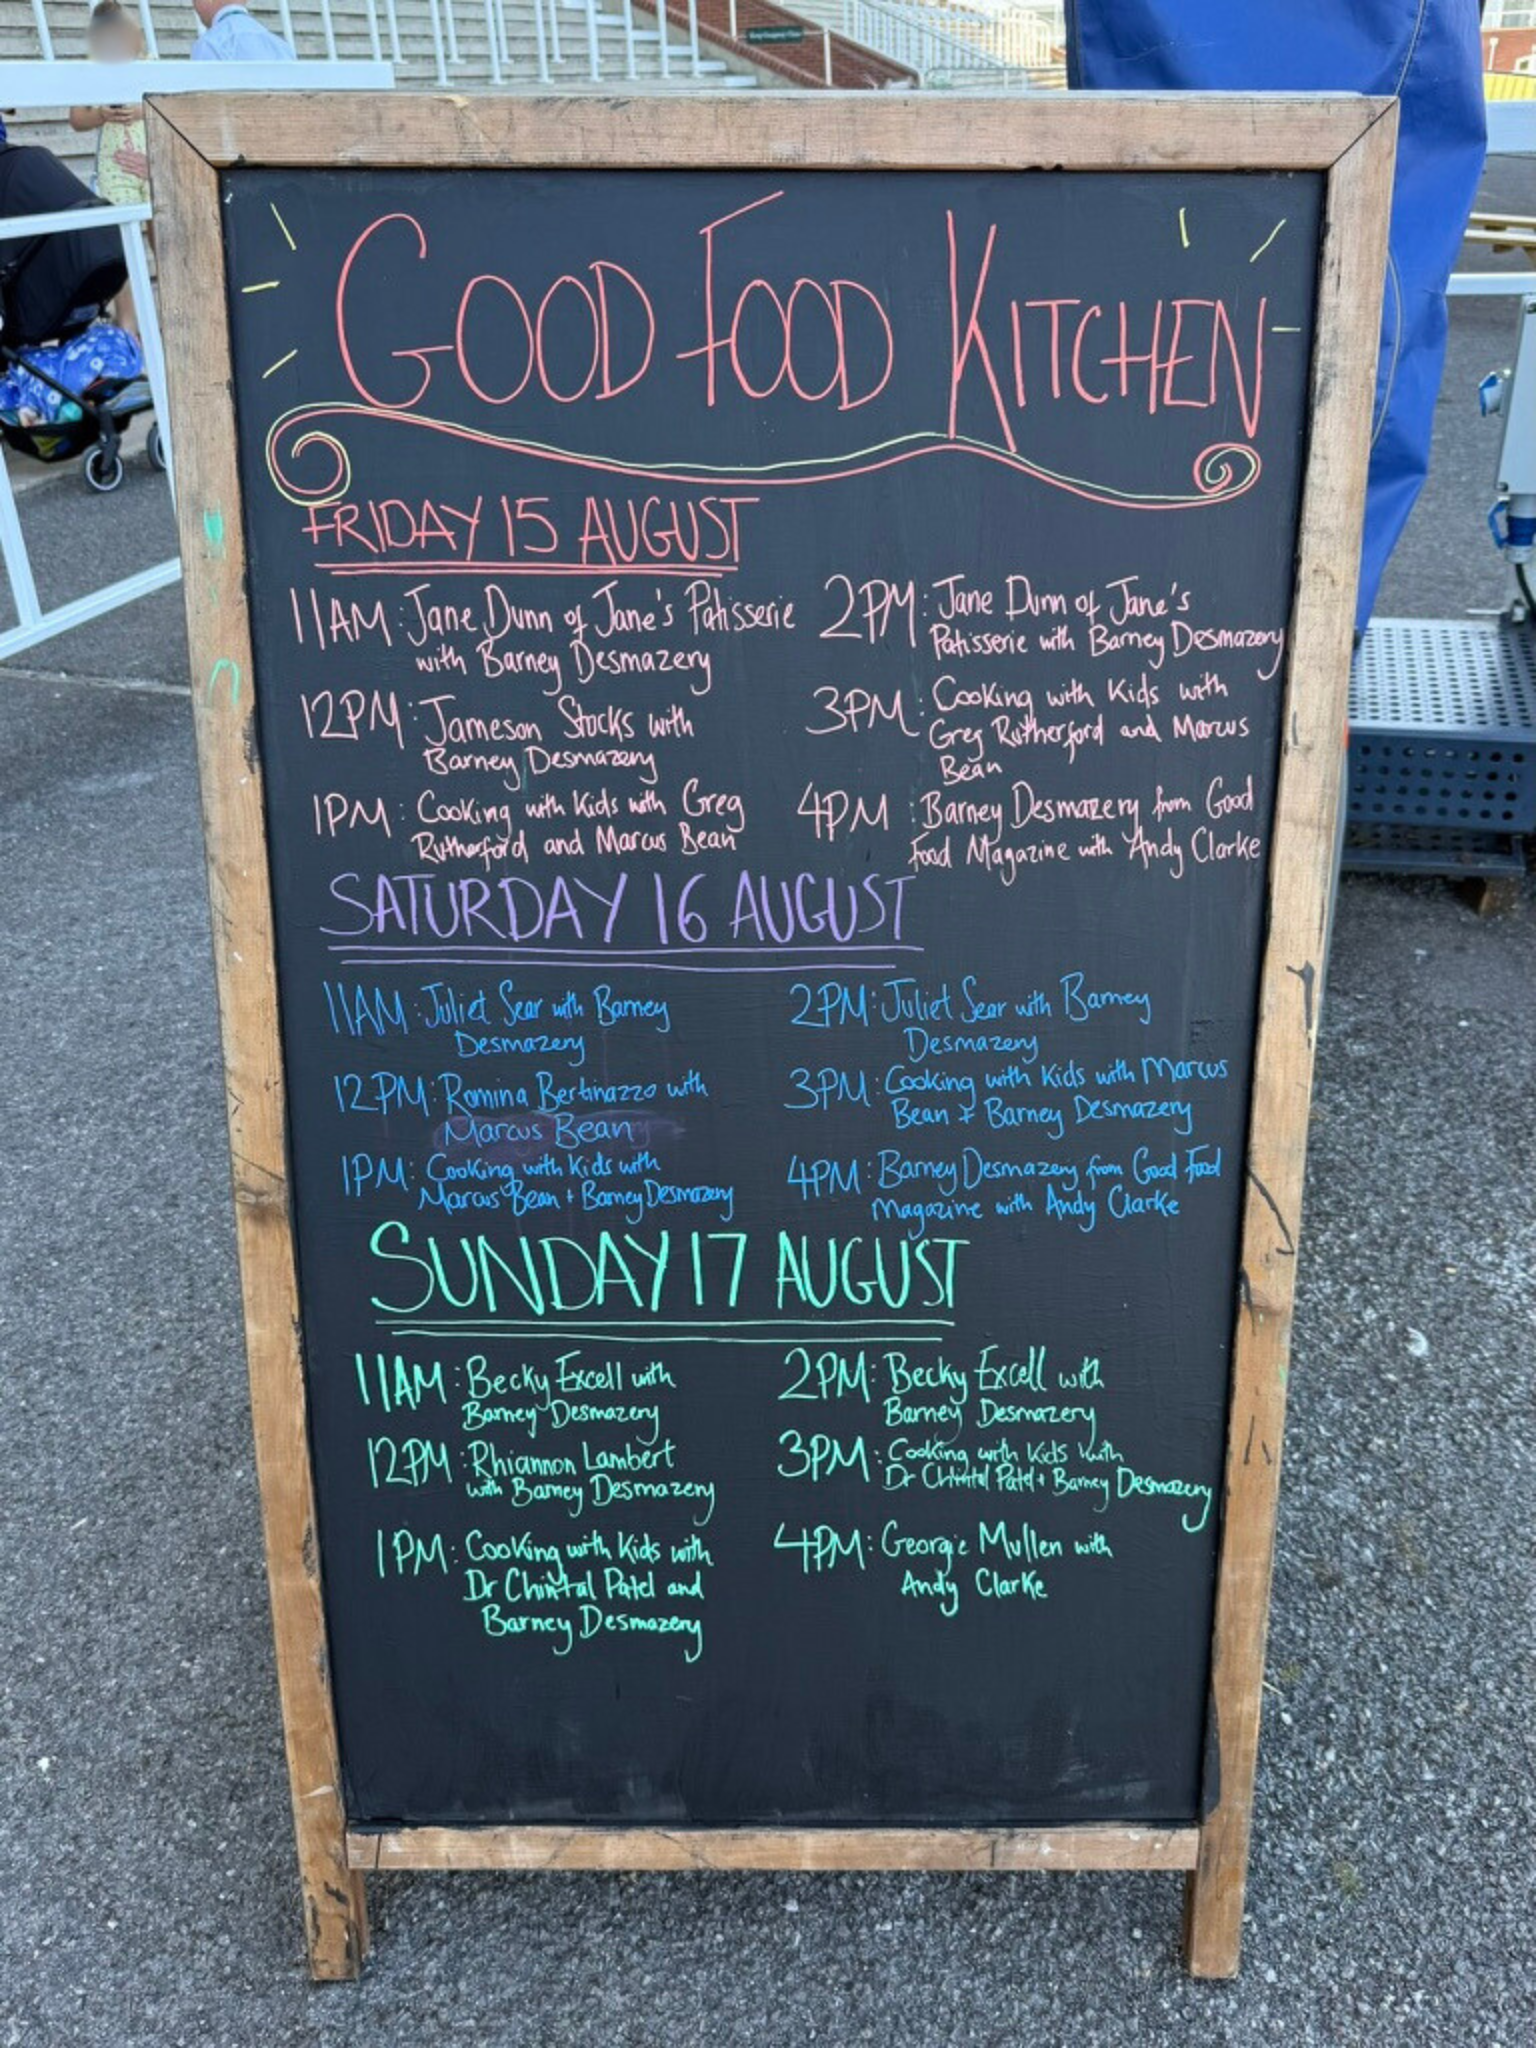 GOOD FOOD KITCHEN
FRIDAY 15 AUGUST
11AM: Jane Dunn of Jane's Patisserie
with Barney Desmazery
12PM: Jameson Stocks with
Barney Desmazery
1PM: Cooking with Kids with Greg
Rutherford and Marcus Bean
2PM: Jane Dunn of Jane's
Patisserie with Barney Desmazery
3PM: Cooking with Kids with
Greg Rutherford and Marcus
Bean
4PM: Barney Desmazery from Good
Food Magazine with Andy Clarke
SATURDAY 16 AUGUST
11AM: Juliet Sear with Barney
Desmazery
12PM: Romina Bertinazzo with
Marcus Bean
1PM: Cooking with Kids with
Marcus Bean + Barney Desmazery
2PM: Juliet Sear with Barney
Desmazery
3PM: Cooking with Kids with Marcus
Bean + Barney Desmazery
4PM: Barney Desmazery from Good Food
Magazine with Andy Clarke
SUNDAY 17 AUGUST
11AM: Becky Excell with
Barney Desmazery
12PM: Rhiannon Lambert
with Barney Desmazery
1PM: Cooking with Kids with
Dr Chintal Patel and
Barney Desmazery
2PM: Becky Excell with
Barney Desmazery
3PM: Cooking with Kids with
Dr Chintal Patel + Barney Desmazery
4PM: Georgie Mullen with
Andy Clarke